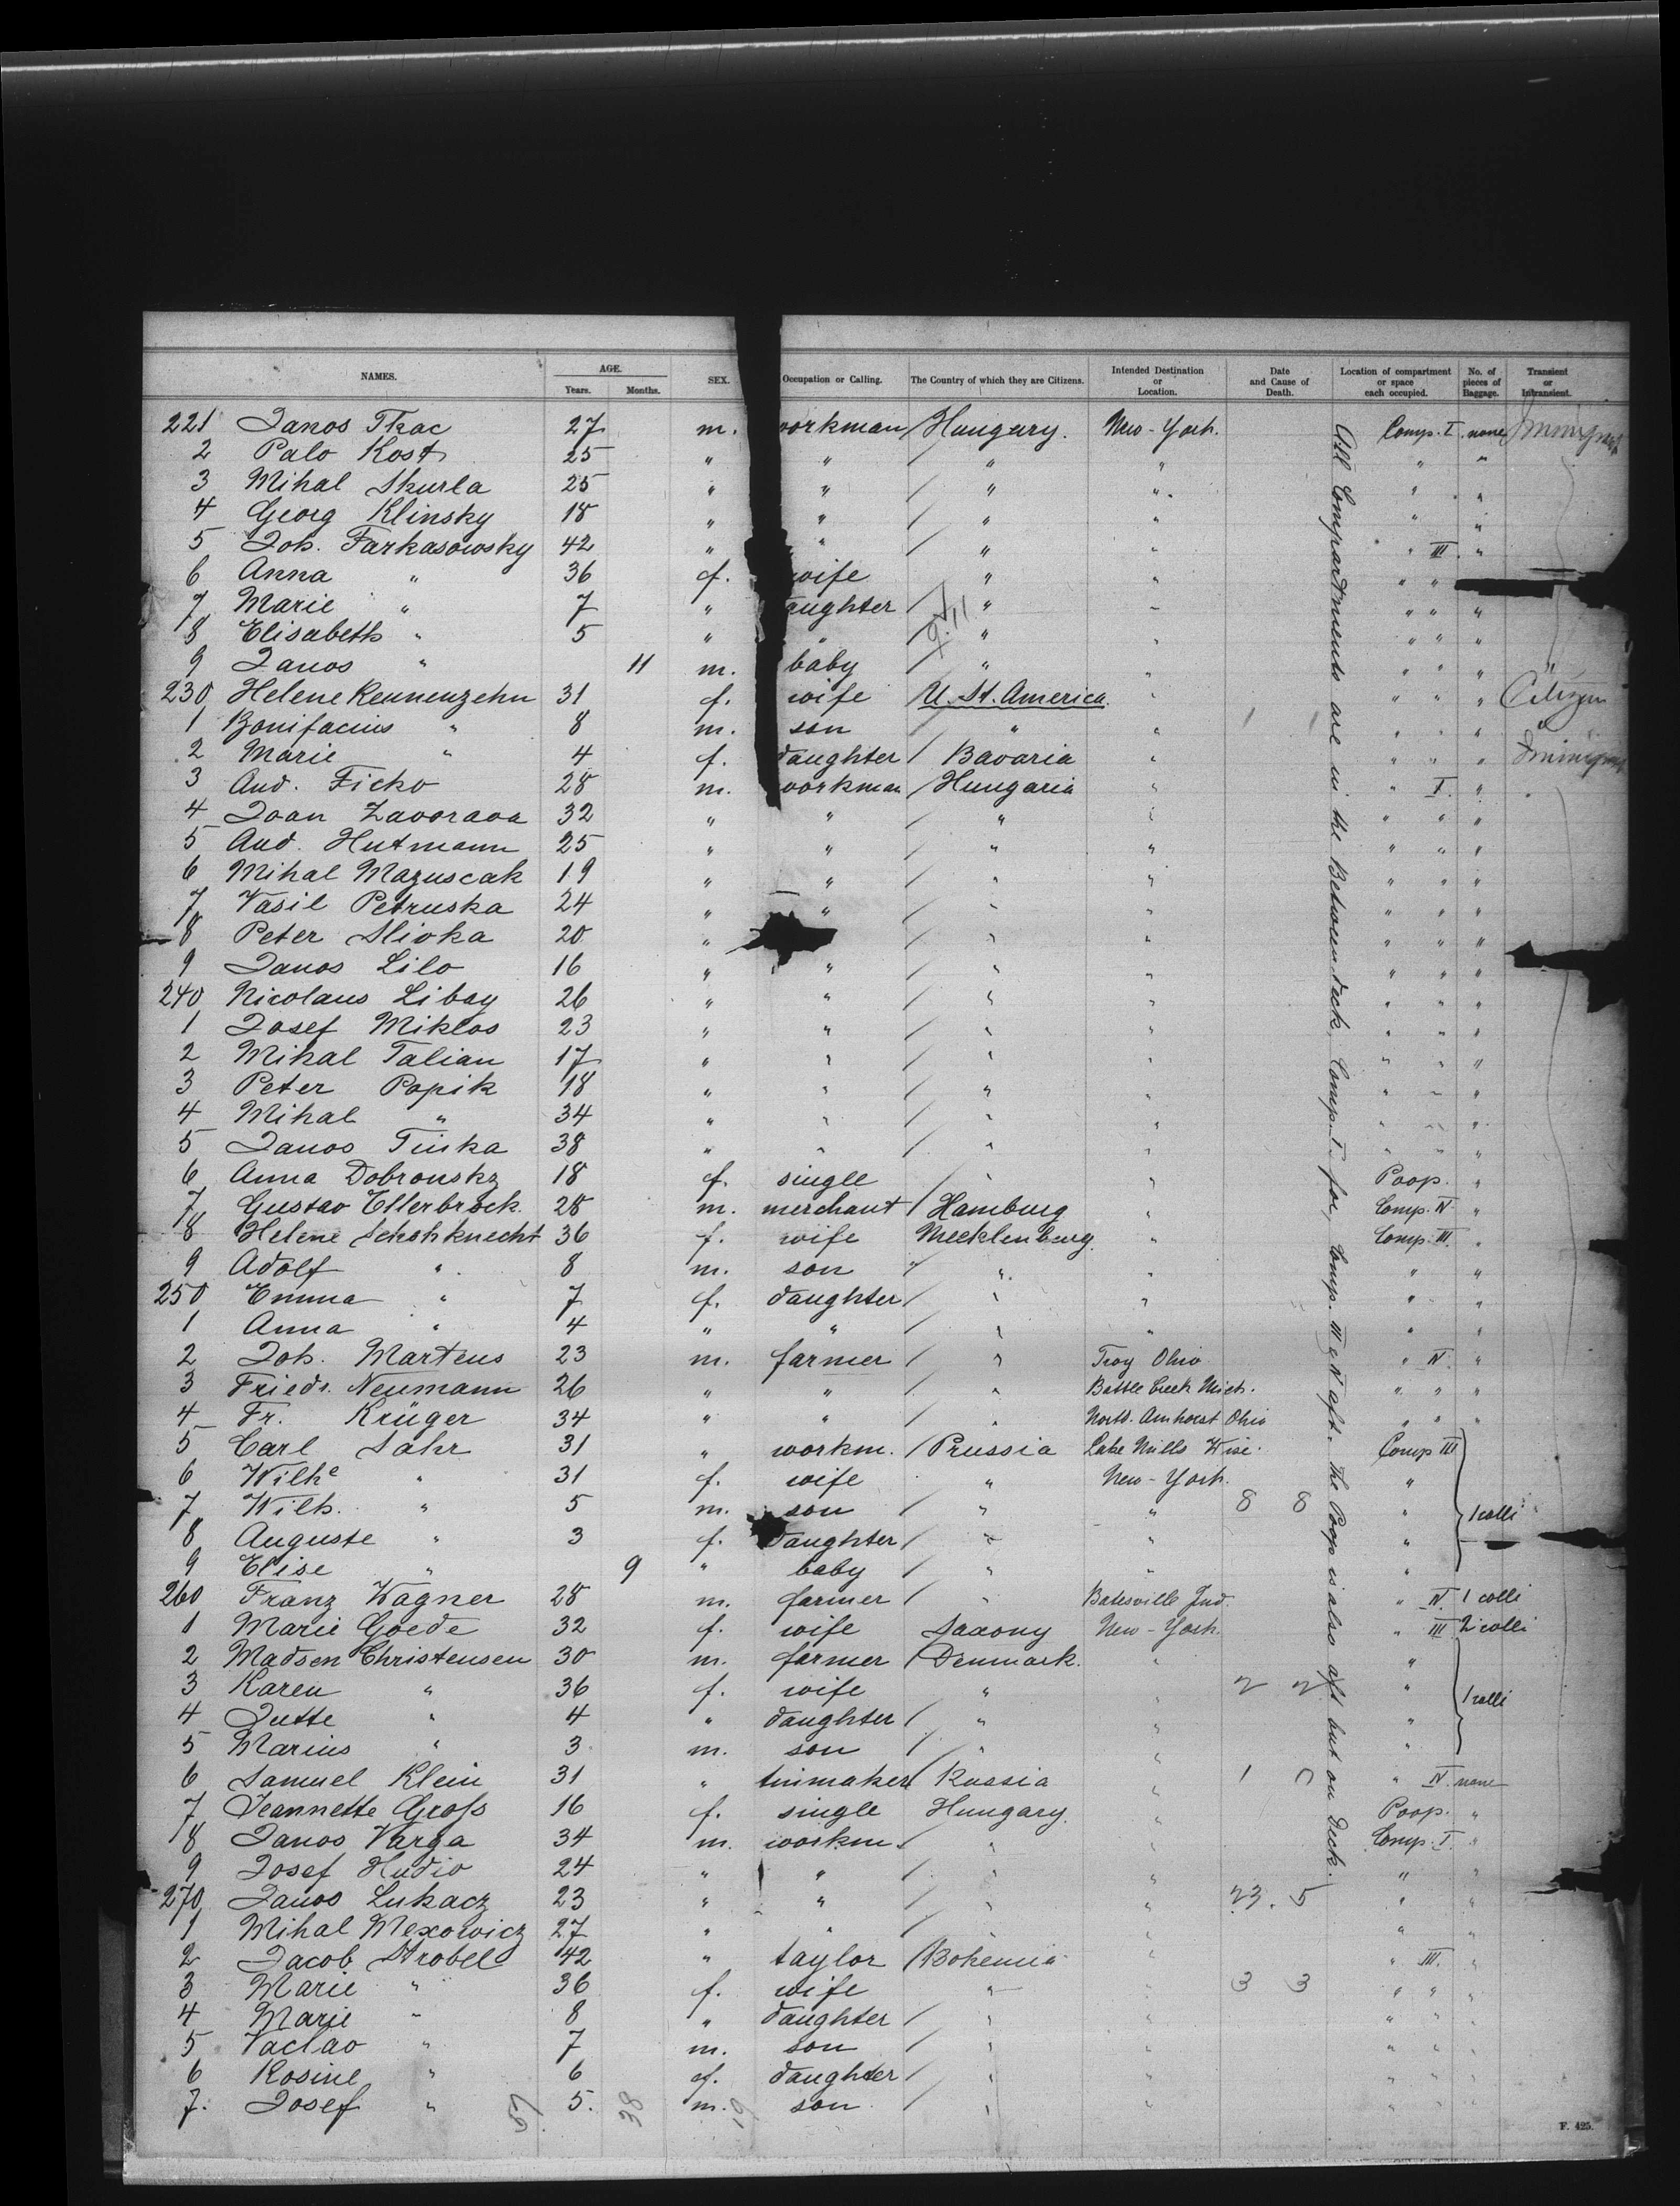 NAMES. AGE. Years. Months. SEX. Occupation or Calling. The Country of which they are Citizens. Intended Destination or Location. Date and Cause of Death. Location of compartment or space each occupied. No. of pieces of Baggage. Transient or Intransient.
221 Janos Tkac 27 m. workman Hungary. New-York. Comp. I. none Immigrant
2 Palo Kost 25 " " " " " "
3 Mihal Skurla 25 " " " " " "
4 Georg Klinsky 18 " " " " " "
5 Joh. Farkasowsky 42 " " " " " III. "
6 Anna " 36 f. wife " " " "
7 Marie " 7 " daughter " " " " "
8 Elisabeth " 5 " " " " " " "
9 Janos " 11 m. baby " " " " "
230 Helene Rennenzehn 31 f. wife U. St. America. " " " " Citizen
1 Bonifacius " 8 m. son " " 1 1 " " " "
2 Marie " 4 f. daughter Bavaria " " " " Immigrant
3 And. Ficko 28 m. workman Hungaria " " I. "
4 Joan Zavorava 32 " " " " " " "
5 And. Hutmann 25 " " " " " " "
6 Mihal Mazuscak 19 " " " " " " "
7 Vasil Petruska 24 " " " " " " "
8 Peter Slivka 20 " " " " " "
9 Janos Lilo 16 " " " " " " "
240 Nicolaus Libay 26 " " " " " " "
1 Josef Miklos 23 " " " " " " "
2 Mihal Talian 17 " " " " " " "
3 Peter Popik 18 " " " " " " "
4 Mihal " 34 " " " " " " "
5 Janos Tinka 38 " " " " " " "
6 Anna Dobronsky 18 f. single " " Poop. "
7 Gustav Ellerbrock. 28 m. merchant Hamburg " Comp. IV "
8 Helene Schohknecht 36 f. wife Mecklenburg. " Comp. III. "
9 Adolf " 8 m. son " " " "
250 Emma " 7 f. daughter " " " "
1 Anna " 4 " " " " " "
2 Joh. Martens 23 m. farmer " Troy Ohio " IV. "
3 Friedr. Neumann 26 " " " Battle Creek Mich. " " "
4 Fr. Krüger 34 " " " North. Amhorst Ohio " " "
5 Carl Sahr 31 " workm. Prussia Lake Mills Wisc. Comp III
6 Wilhe " 31 f. wife " New-York. "
7 Wilh. " 5 m. son " " 8 8 " 1 colli
8 Auguste " 3 f. daughter " " "
9 Elise " 9 " baby " " "
260 Franz Wagner 28 m. farmer " Batesville Ind. " IV. 1 colli
1 Marie Goede 32 f. wife Saxony New-York. " III 2 colli
2 Madsen Christensen 30 m. farmer Denmark. " "
3 Karen " 36 f. wife " " 2 2 " 1 colli
4 Jutte " 4 " daughter " " "
5 Marius " 3 m. son " " "
6 Samuel Klein 31 " tinmaker Russia " 1 0 " IV. none
7 Jeannette Groß 16 f. single Hungary. " Poop. "
8 Janos Varga 34 m. workm. " " Comp. I. "
9 Josef Hudio 24 " " " " " "
270 Janos Lukacz 23 " " " " 23. 5 " "
1 Mihal Mexowicz 27 " " " " " "
2 Jacob Strobel 42 " taylor Bohemia " " III. "
3 Marie " 36 f. wife " " 3 3 " " "
4 Marie " 8 " daughter " " " " "
5 Vaclav " 7 m. son " " " " "
6 Rosine " 6 f. daughter " " " " "
7. Josef " 5. m. son " " " " "
All Compartments are in the Betweendeck, Comp. I. for, Comp. III & IV aft. The Poop is also aft but on Deck.
57 38 19
F. 425.